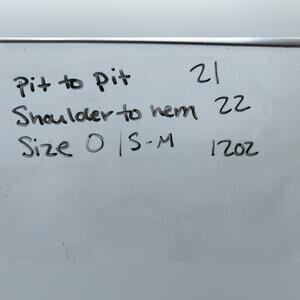 Pit to pit 21
Shoulder to hem 22
Size 0 | S-M 1202